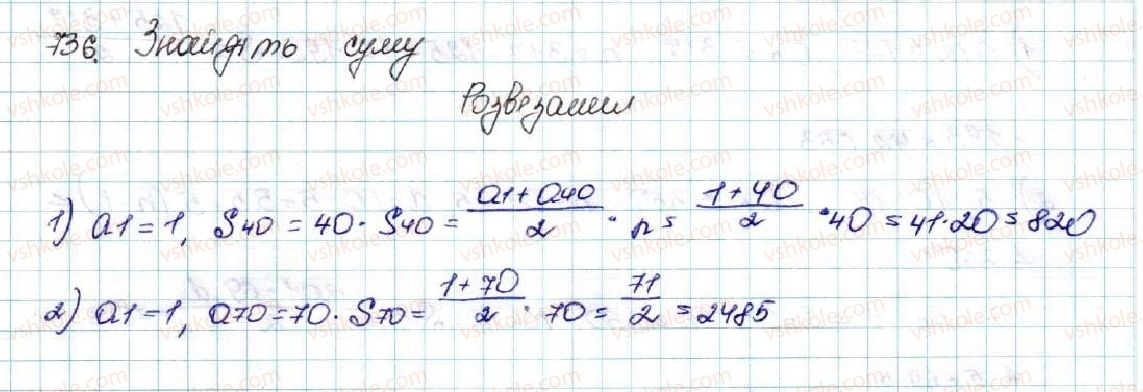 736. Знайдіть суму
Розвезания
1) a1 = 1, S40 = 40. S40 = (a1 + a40)/2 · n = (1 + 40)/2 · 40 = 41·20 = 820
2) a1 = 1, a70 = 70. S70 = (1 + 70)/2 · 70 = 71/2 = 2485